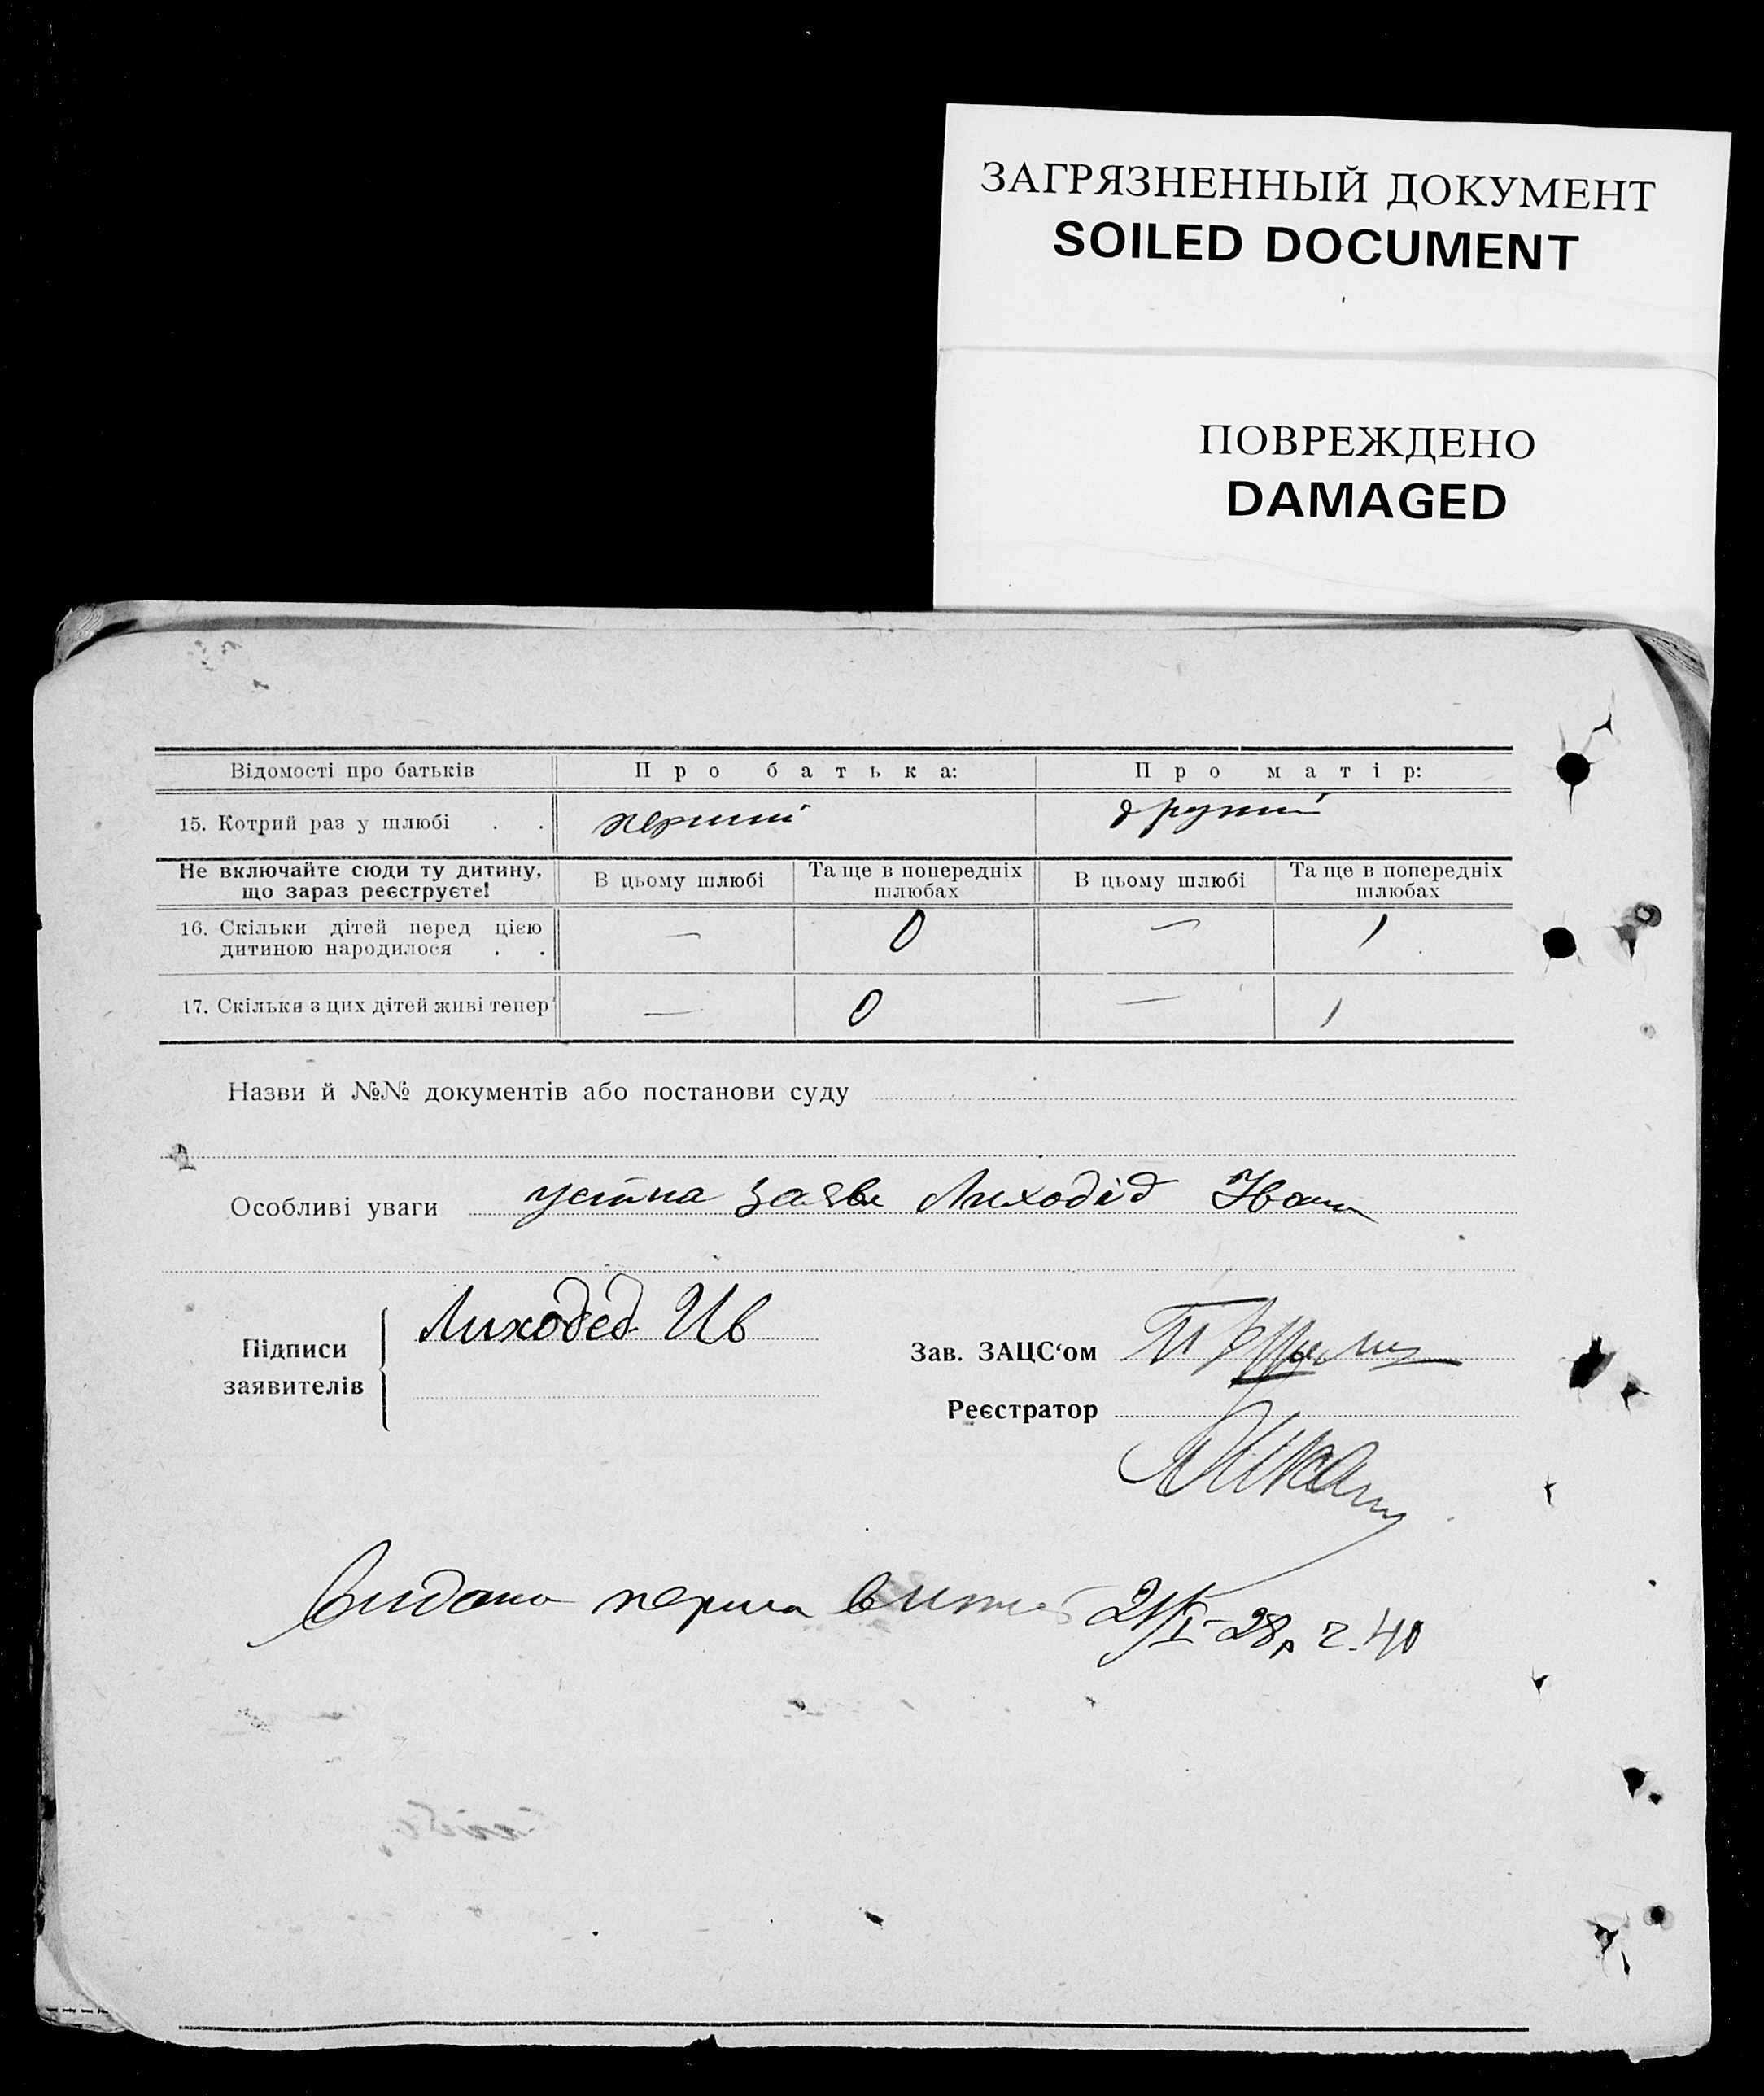 ЗАГРЯЗНЕННЫЙ ДОКУМЕНТ
SOILED DOCUMENT
ПОВРЕЖДЕНО
DAMAGED
Відомості про батьків Про батька: Про матір:
15. Котрий раз у шлюбі . . перший другий
Не включайте сюди ту дитину, що зараз реєструєте! В цьому шлюбі Та ще в попередніх шлюбах В цьому шлюбі Та ще в попередніх шлюбах
16. Скільки дітей перед цією дитиною народилося . . — 0 — 1
17. Скільки з цих дітей живі тепер — 0 — 1
Назви й №№ документів або постанови суду
Особливі уваги устна заява Лиходід Іван
Підписи заявителів Лиходед Ив
Зав. ЗАЦС‘ом
Реєстратор
Видано перша 28р ч. 40